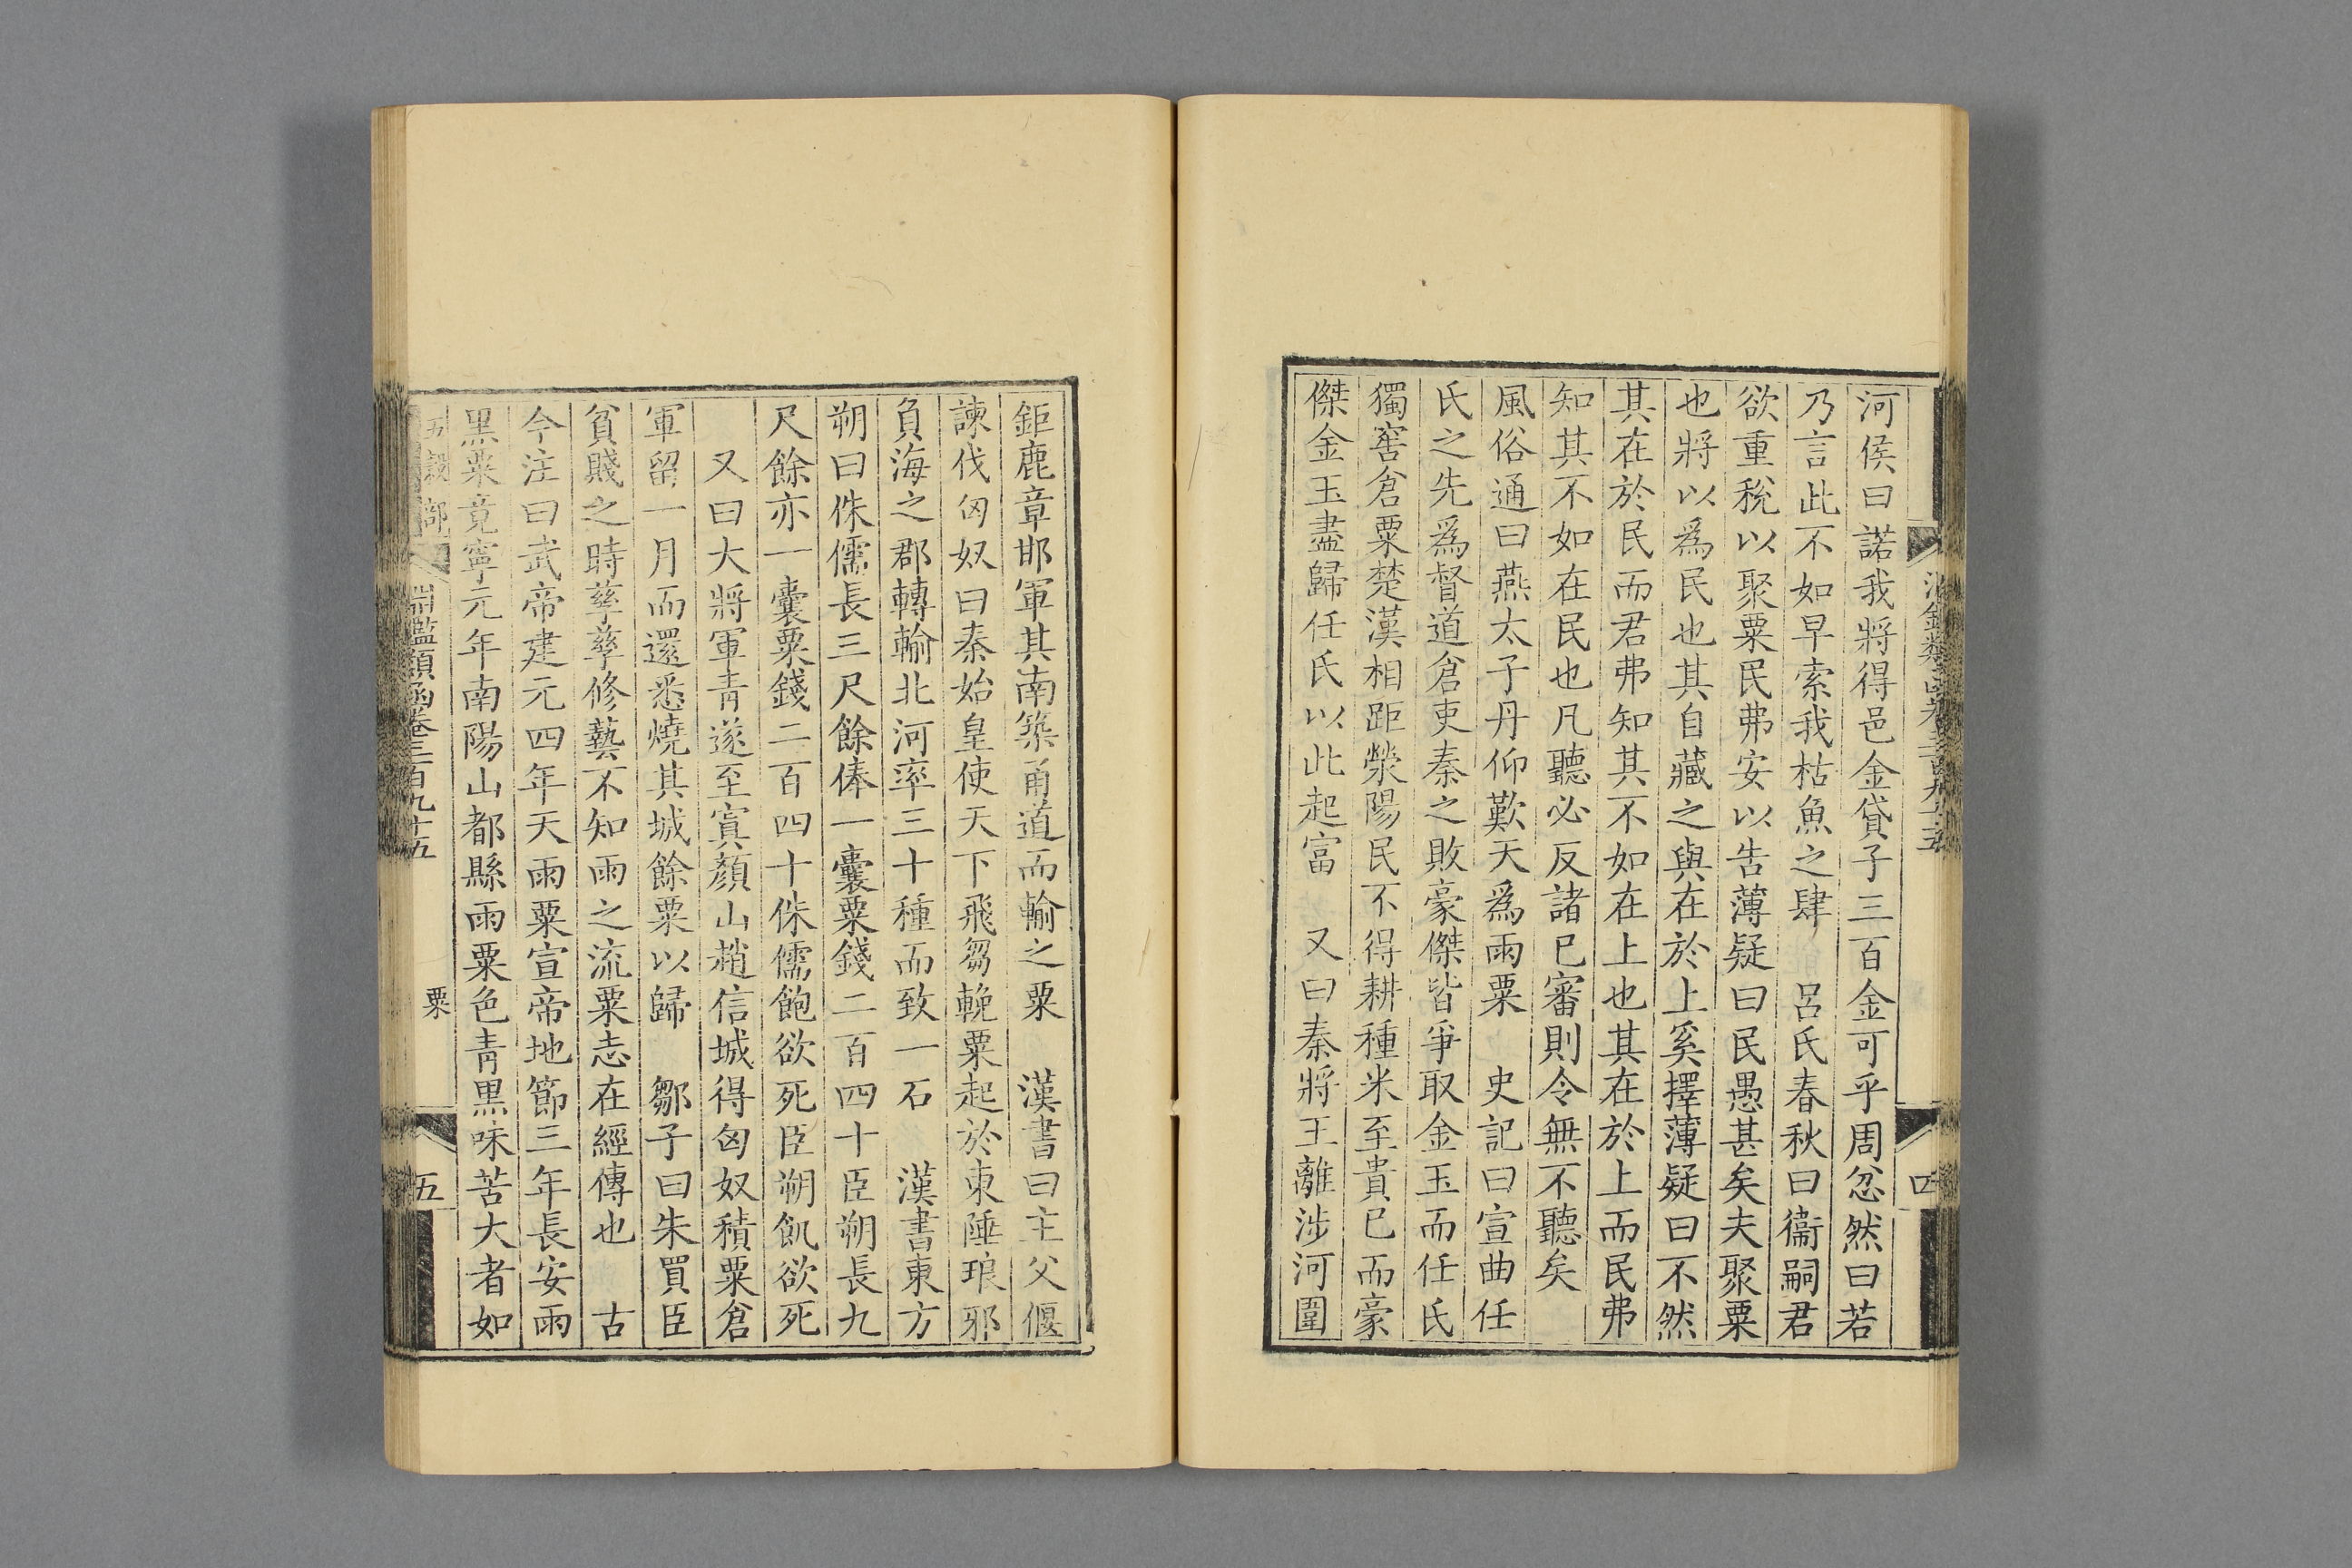 河侯曰諾我將得邑金貸子三百金可乎周忿然曰若
乃言此不如早索我枯魚之肆　呂氏春秋曰衞嗣君
欲重稅以聚粟民弗安以告薄疑曰民愚甚矣夫聚粟
也將以爲民也其自藏之與在於上奚擇薄疑曰不然
其在於民而君弗知其不如在上也其在於上而民弗
知其不如在民也凡聽必反諸已審則令無不聽矣
風俗通曰燕太子丹仰歎天爲雨粟　史記曰宣曲任
氏之先爲督道倉吏秦之敗豪傑皆爭取金玉而任氏
獨窖倉粟楚漢相距滎陽民不得耕種米至貴已而豪
傑金玉盡歸任氏以此起富　又曰秦將王離涉河圍
鉅鹿章邯軍其南築甬道而輸之粟　漢書曰主父偃
諫伐匈奴曰秦始皇使天下飛芻輓粟起於東陲琅邪
負海之郡轉輸北河率三十種而致一石　漢書東方
朔曰侏儒長三尺餘俸一囊粟錢二百四十臣朔長九
尺餘亦一囊粟錢二百四十侏儒飽欲死臣朔飢欲死
又曰大將軍靑遂至窴顏山趙信城得匈奴積粟倉
軍留一月而還悉燒其城餘粟以歸　鄒子曰朱買臣
貧賤之時孳孳修藝不知雨之流粟志在經傳也　古
今注曰武帝建元四年天雨粟宣帝地節三年長安雨
黑粟竟寧元年南陽山都縣雨粟色靑黑味苦大者如
五穀部　淵鑑類函卷三百九十五　粟　五